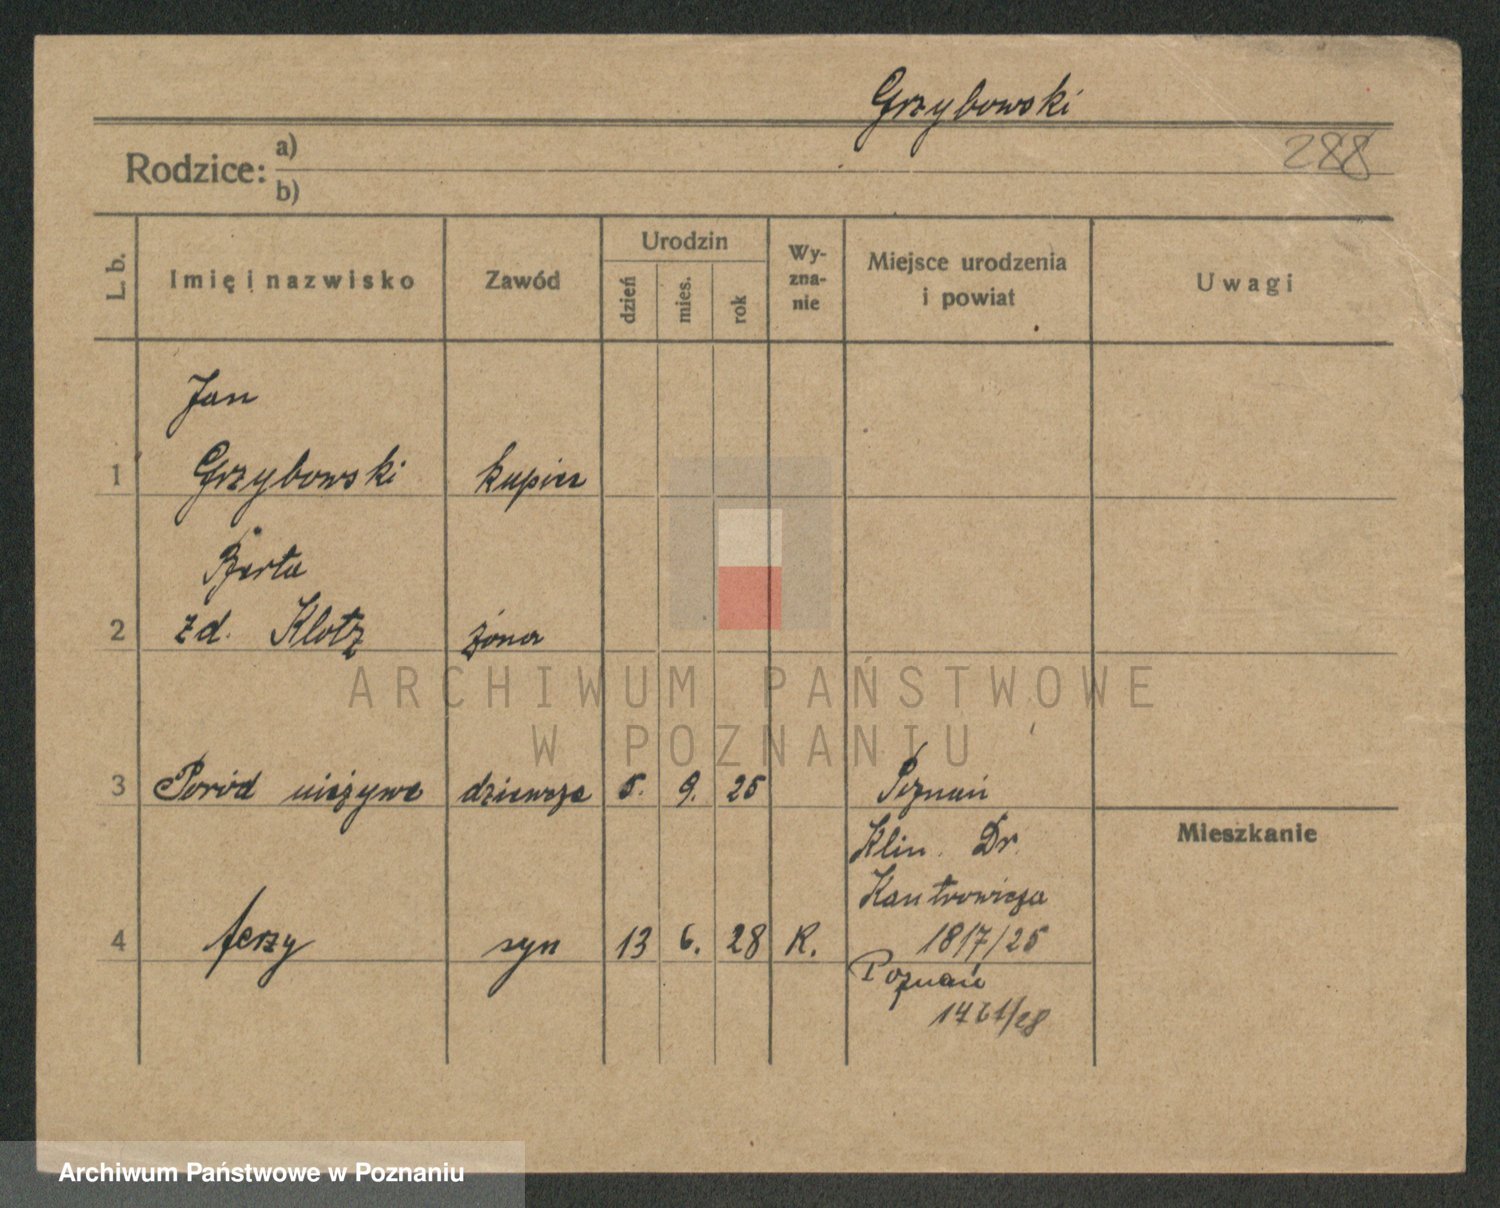 Grzybowski
288
Rodzice: a)
b)
L. b.
Imię i nazwisko
Zawód
Urodzin
dzień
mies.
rok
Wy-
zna-
nie
Miejsce urodzenia
i powiat
Uwagi
Jan
1 Grzybowski kupiec
Berta
2 zd. Klotz żona
ARCHIWUM PAŃSTWOWE
W POZNANIU
3 Poród nieżywe dziewczę 5. 9. 25 Poznań
Klin. Dr.
Kantrowicza
1817/25
Mieszkanie
4 Jerzy syn 13 6. 28 R.
Poznań
1761/28
Archiwum Państwowe w Poznaniu